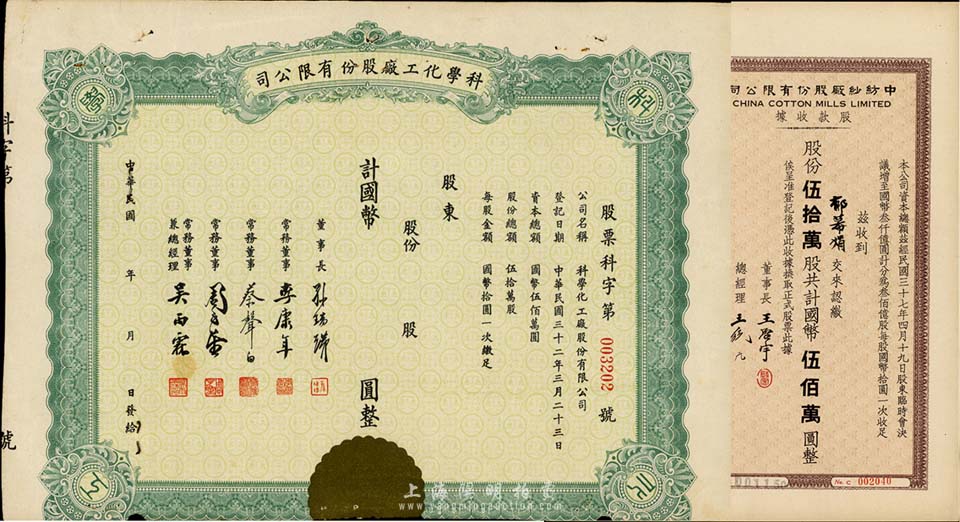 司公限有份股廠工化學科
科
學
化
工
股票科字第 003202 號
公司名稱 科學化工廠股份有限公司
登記日期 中華民國三十二年三月二十三日
資本總額 國幣伍佰萬圓
股份總額 伍拾萬股
每股金額 國幣拾圓一次繳足
股東
股份 股
計國幣 圓整
董事長
常務董事 李康年
常務董事 蔡聲白
常務董事
常務董事兼總經理 吳雨霖
中華民國 年 月 日發給
科字第 號
司公限有份股廠紗紡中
CHINA COTTON MILLS LIMITED
據收款股
本公司資本總額茲經民國三十七年四月十九日股東臨時會決
議增至國幣叁仟億圓計分為叁佰億股每股國幣拾圓一次收足
茲收到
交來認繳
股份伍拾萬股共計國幣伍佰萬圓整
俟呈准登記後憑此收據換取正式股票此據
董事長 王啓宇
總經理
No. C 002040
001150
上海陽明拍賣
www.yangmingauction.com